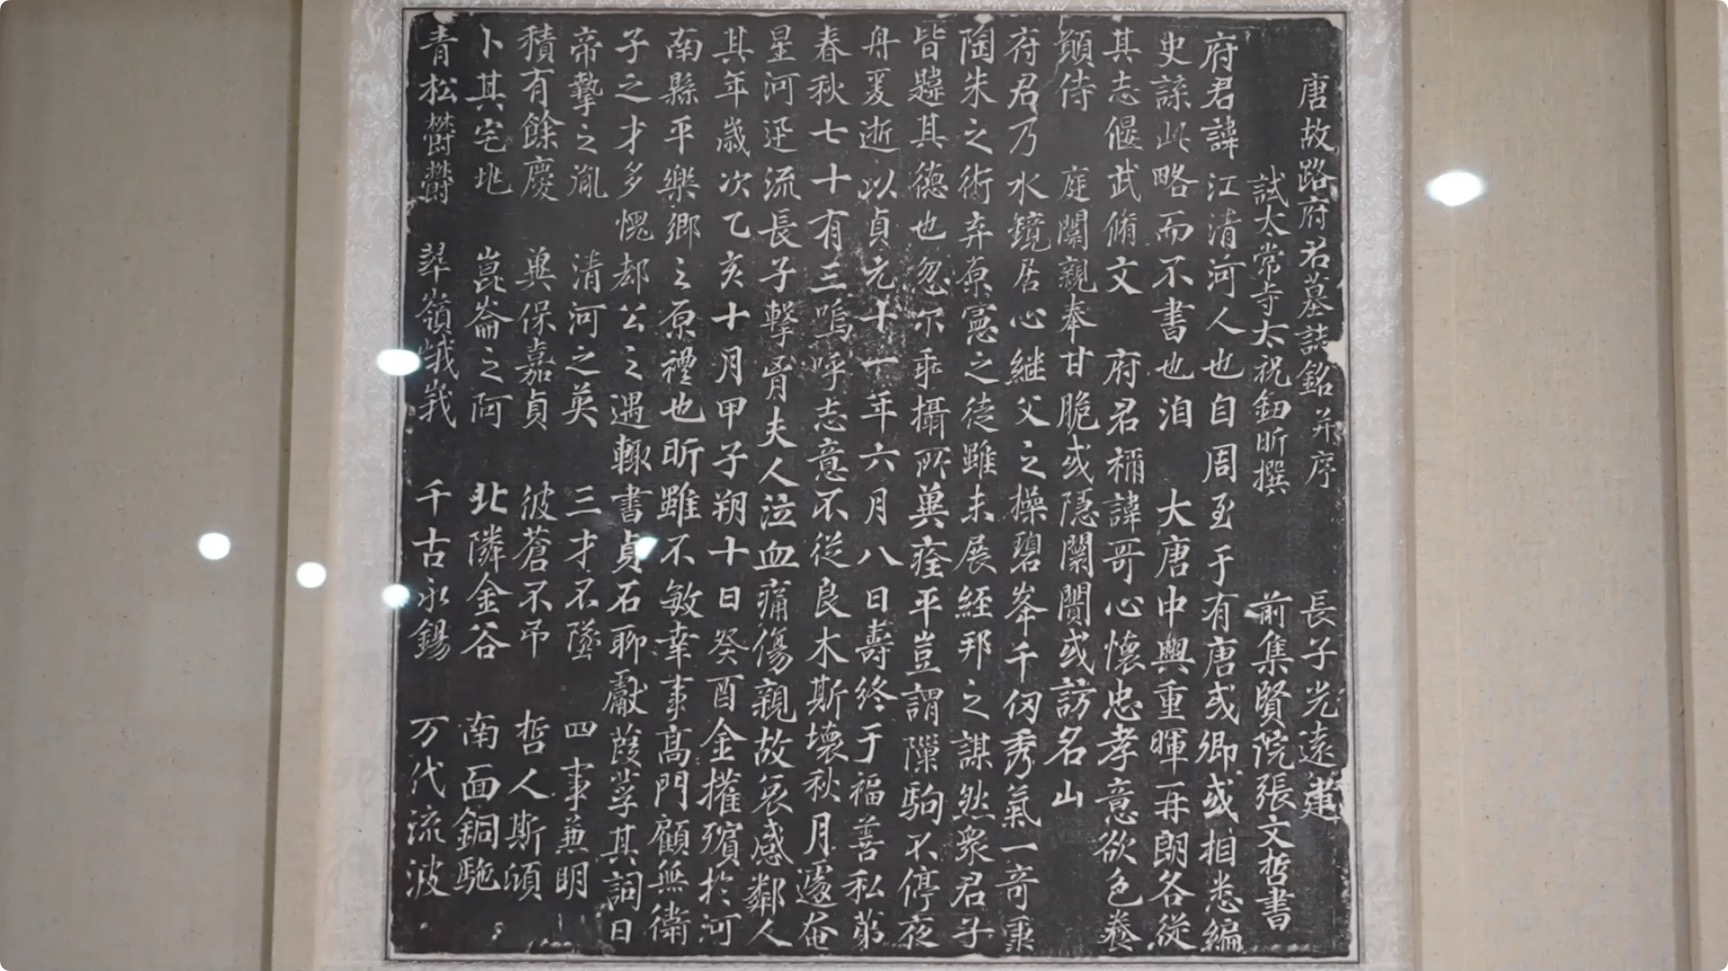 唐故路府君墓誌銘并序 長子光遠建
試太常寺太祝鈕昕撰 前集賢院張文哲書
府君諱江清河人也自周至于有唐或卿或相悉編
史諜此略而不書也洎 大唐中興重暉再朗各從
其志偃武脩文 府君禰諱哥心懷忠孝意欲色養
顛侍 庭闈親奉甘脆或隱闤闠或訪名山
府君乃水鏡居心継父之操碧峯千仞秀氣一奇稟
陶朱之術弃原憲之徒雖未展経邦之謀然衆君子
皆韙其德也忽尔乖攝所兾痊平豈謂隟駒不停夜
舟夏逝以貞元十一年六月八日壽終于福善私苐
春秋七十有三嗚呼志意不從良木斯壞秋月遽奄
星河迅流長子擊胷夫人泣血痛傷親故哀感鄰人
其年歲次乙亥十月甲子朔十日癸酉金擁殯於河
南縣平樂鄉之原禮也昕雖不敏幸事髙門顧無衛
子之才多愧郄公之遇輙書貞石聊獻葭莩其詞曰
帝摯之胤 清河之英 三才不墜 四事兼明
積有餘慶 兾保嘉貞 彼蒼不吊 哲人斯傾
卜其宅地 崑崙之阿 北隣金谷 南面銅駞
青松欝欝 翠嶺峩峩 千古永錫 万代流波